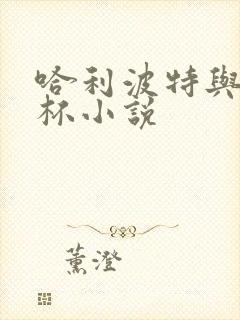 哈利波特與
杯小說
薰澄